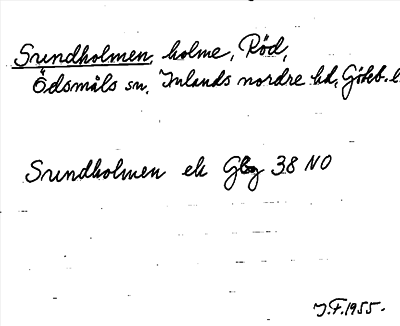 Sundholmen, holme, Röd,
Ödsmåls sn, Inlands nordre hd, Göteb. l
Sundholmen ek Gbg 38 NO
J.F. 1955.